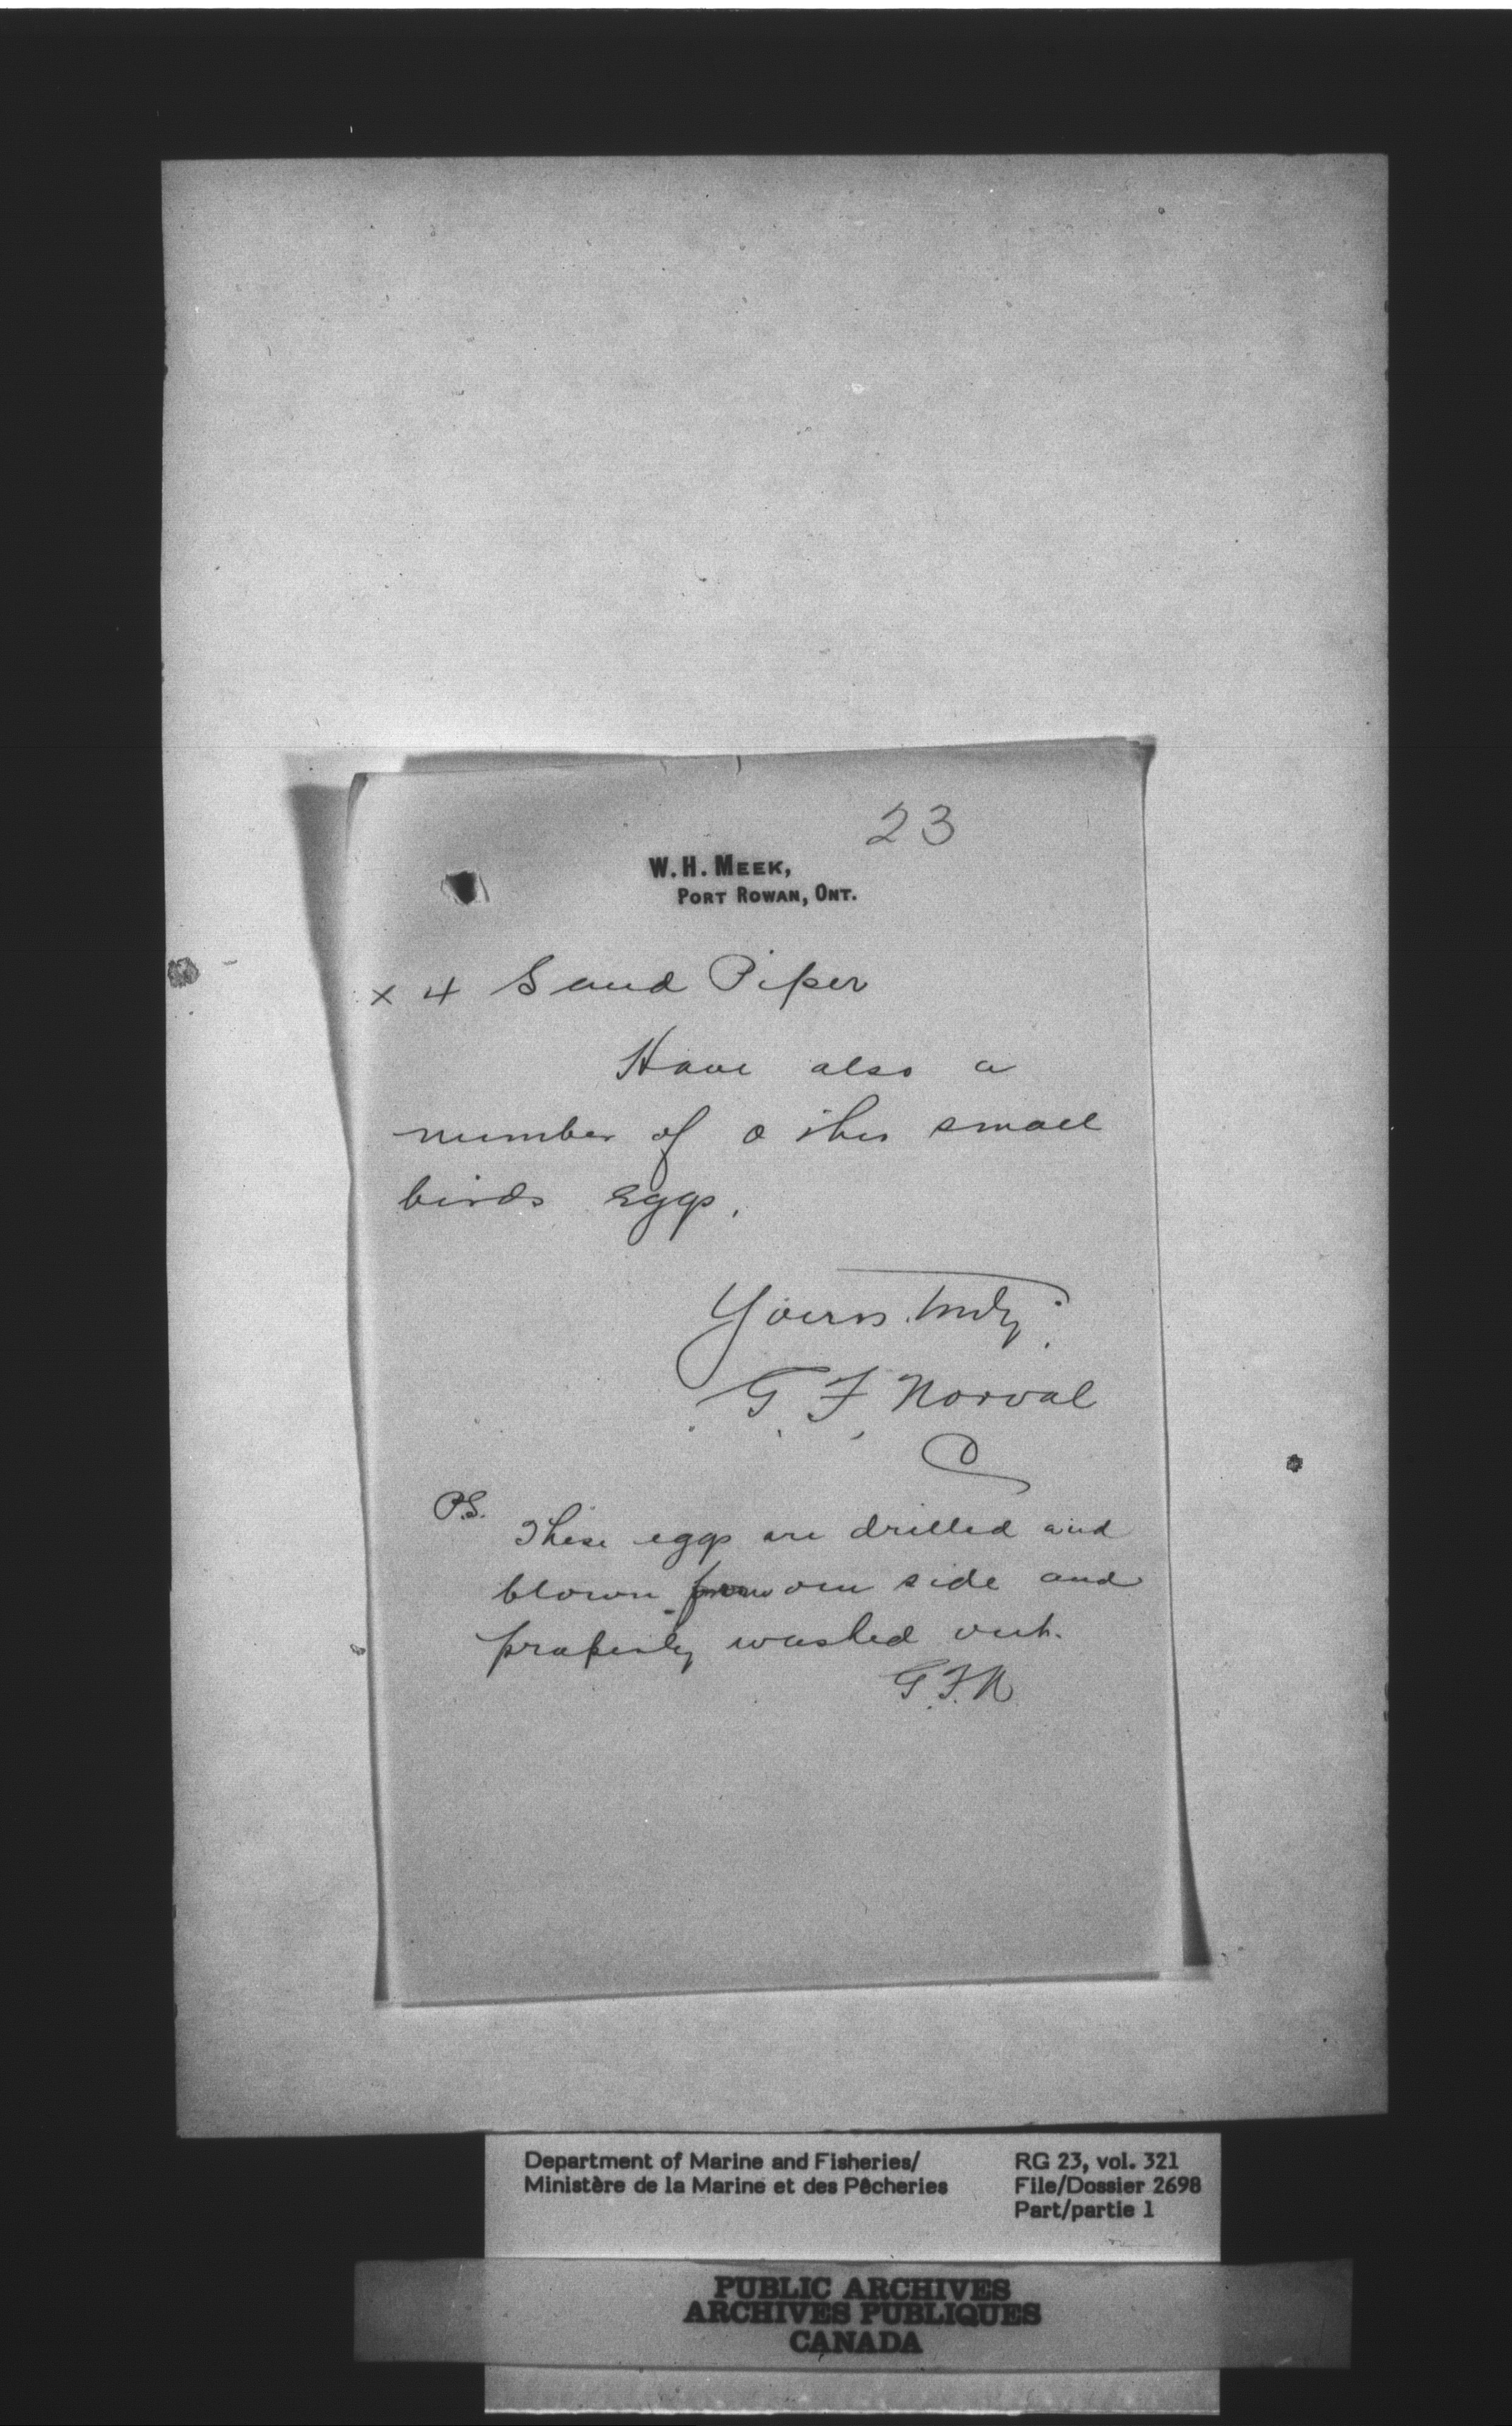 23
W. H. MEEK,
PORT ROWAN, ONT.
x 4 Sand Piper
Have also a
number of other small
birds eggs.
Yours truly
G. F. Norval
P.S.
These eggs are drilled and
blown from one side and
properly washed out.
G.F.N
Department of Marine and Fisheries/
Ministère de la Marine et des Pêcheries
RG 23, vol. 321
File/Dossier 2698
Part/partie 1
PUBLIC ARCHIVES
ARCHIVES PUBLIQUES
CANADA